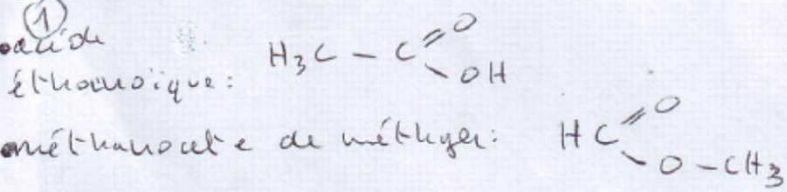 ①
• acide
éthanoïque: H₃C — C =O -OH
• méthanoate de méthyle: HC =O -O-CH₃